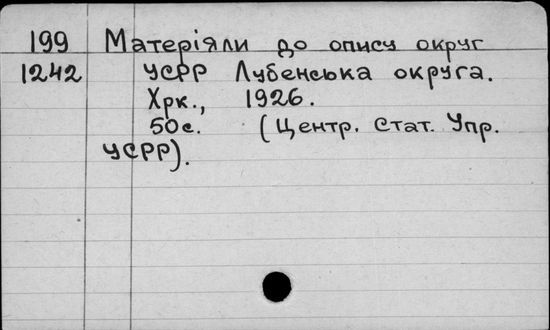 199 Матеріяли до опису округ
1242 УСРР Лубенська округа.
Хрк., 1926.
50с. (Центр. Стат. Упр.
УСРР).